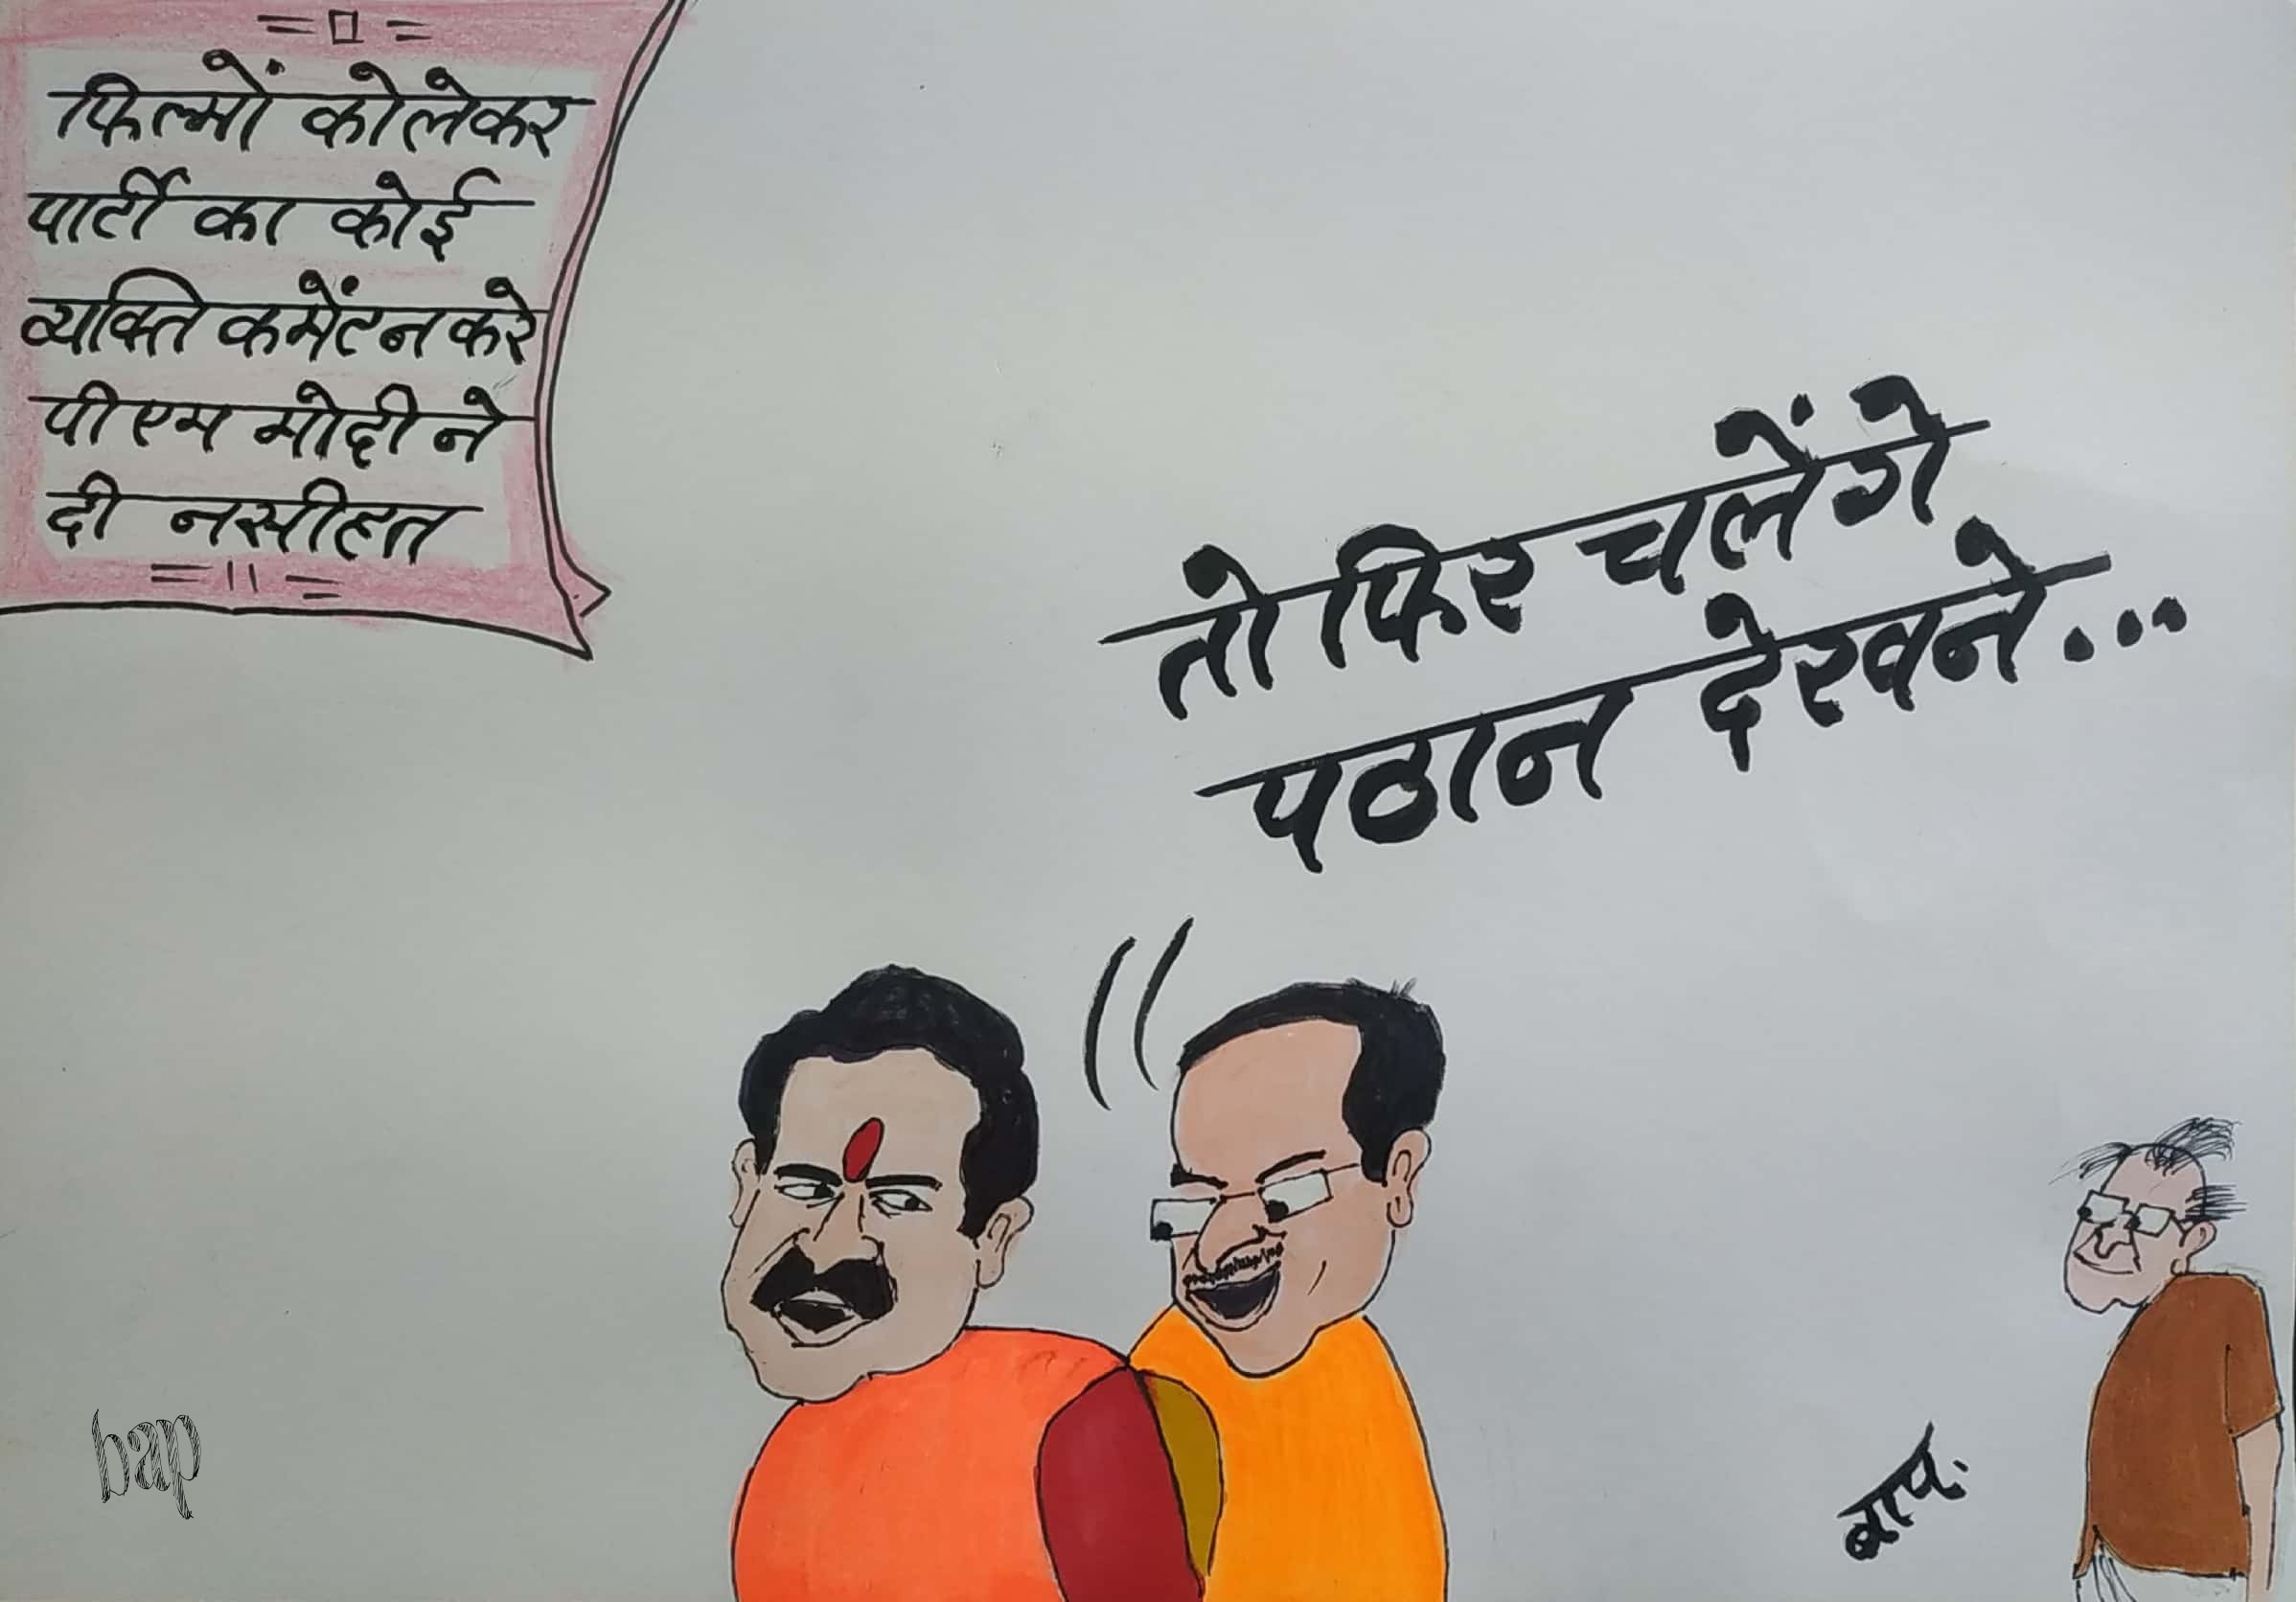 फिल्मों को लेकर
पार्टी का कोई
व्यक्ति कमेंट न करे
पी एम मोदी ने
दी नसीहत
तो फिर चलेंगे
पठान देखने...
bap
बाप.